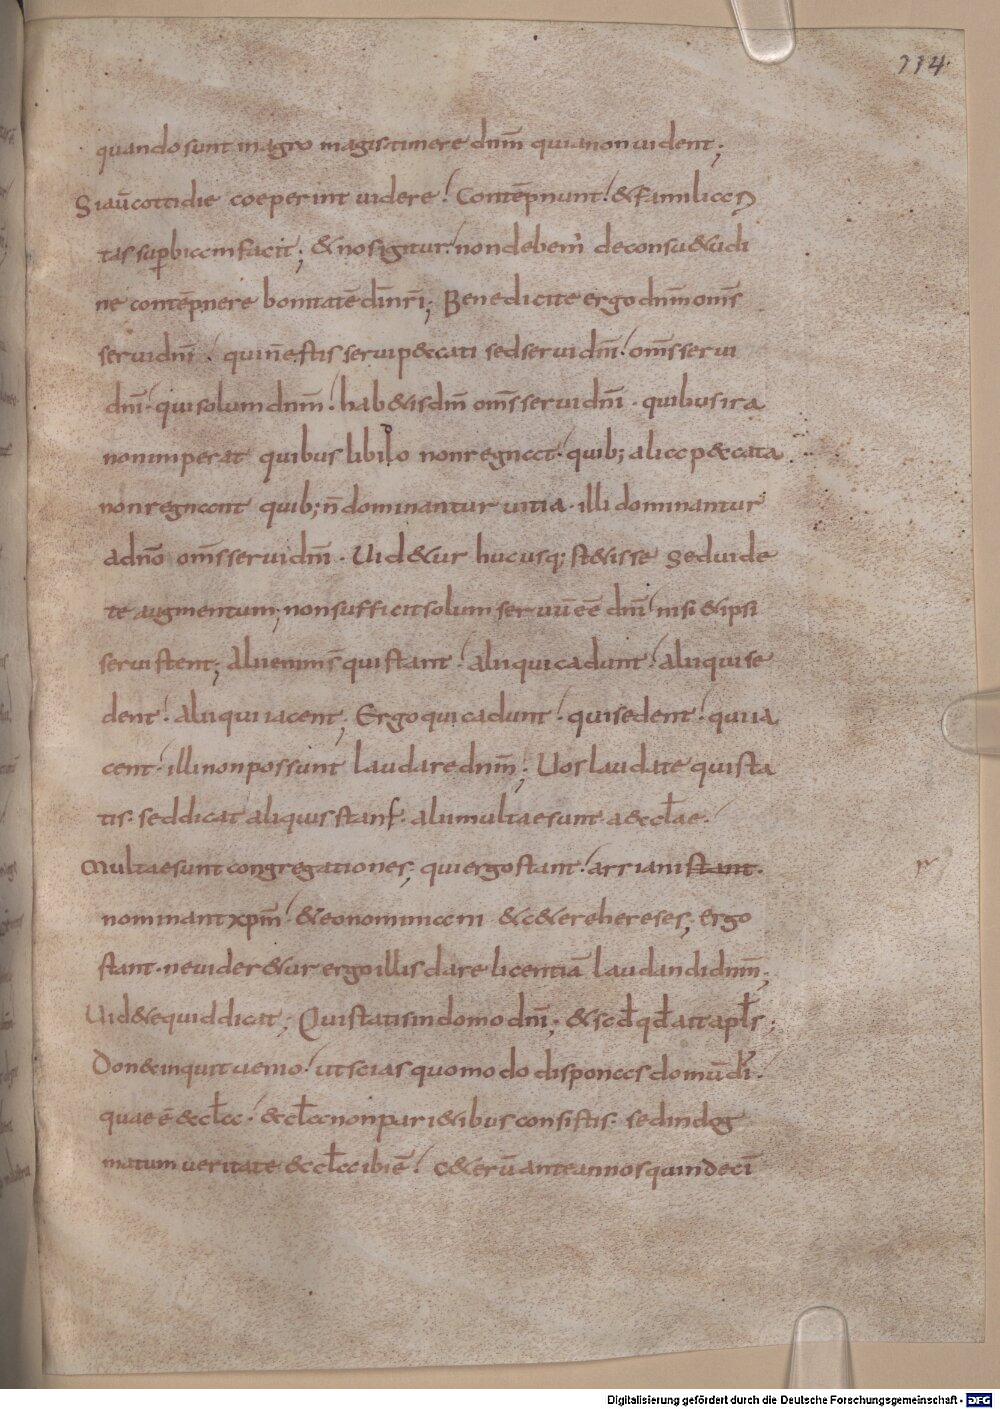 234
quando sunt in agro magis timere dnm̄ quia non uident;
Si aū cottidie coeperint uidere! Contēpnunt! & familicc
tas supbiccm facit; & nos igitur! non debem' de consu&udi
ne contēpnere bonitatē dīnrī; Benedicite ergo dnm̄ om̄s
serui dnī! qui n̄ estis serui p&cati sed serui dnī! om̄s serui
dnī! qui solum dnm̄! hab&is dm̄ om̄s serui dnī · quibus ira
non imperat quibus libilo non regncct! quib; alicc p&cata
non regnccnt quib; n̄ dominantur uitia · illi dominantur
ad dn̄o om̄s serui dnī · Uid&ur hucusq; st&isse sed uide
te augmentum; non sufficit solum seruū eē dnī! nisi & ipsi
serui stent; Alii enim s̄ qui stant! alii qui cadunt! alii qui se
dent! alii qui iacent; Ergo qui cadunt! qui sedent! qui ia
cent! illi non possunt laudare dnm̄; Uos laudate qui sta
tis · sed dicat aliquis stans · alii multae sunt a&cl̄ae!
Multae sunt congregationes; qui ergo stant! arriani stant ·
nominant xpm̄! & eonominccni & c&ere hereses; Ergo
stant · ne uider&ur ergo illis dare licentiā laudandi dnm̄;
Uid&e quid dicit; Qui statis in domo dnī; & scd̄ qd̄ ait apl̄s;
Don& inquit uenio! ut scias quomodo disponccs domū dī ·
quae ē &cl̄cc! &cl̄cc non pari&ibus consistis · sed in dog
matum ueritate &cl̄cc ibi ē! C&erū ante annos quindecī
Digitalisierung gefördert durch die Deutsche Forschungsgemeinschaft - DFG